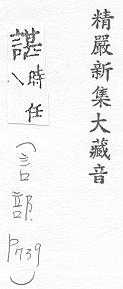 精嚴新集大藏音
諶 時任
(言部 P739)